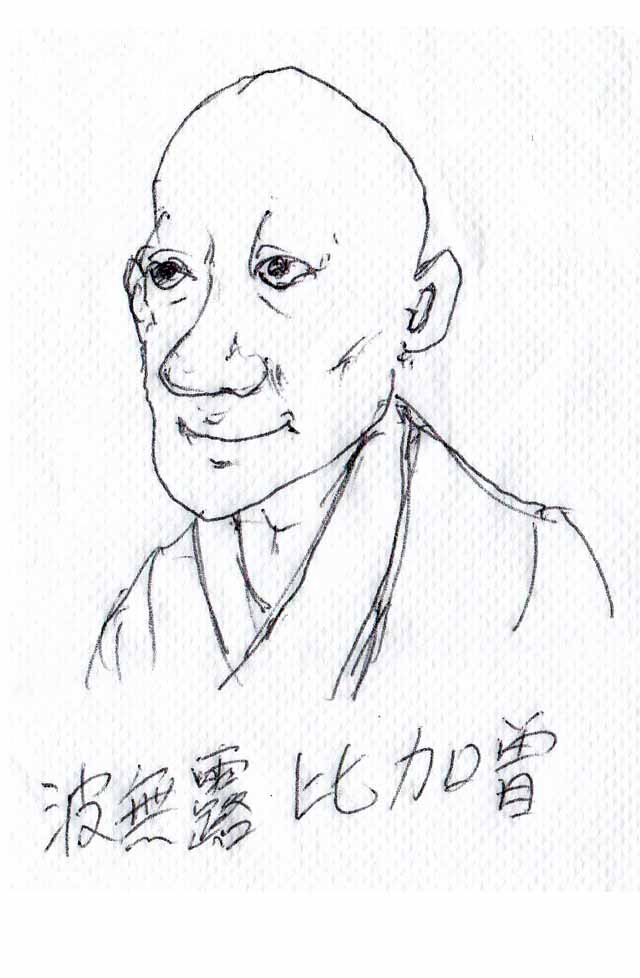 波無露 比加曽